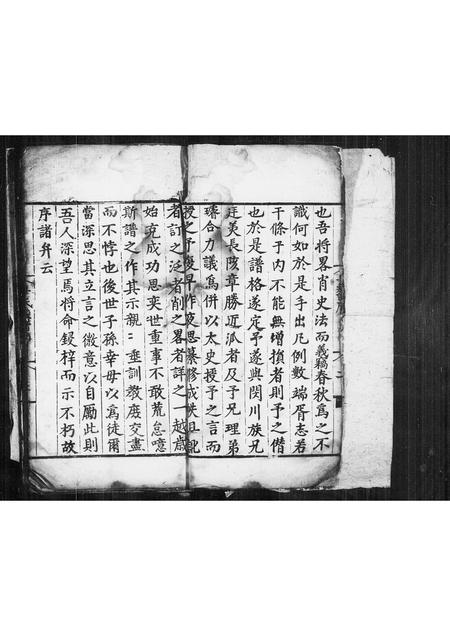 也吾將畧肖史法而義竊春秋為之不
識何如於是手出凡例數端胥志若
干條于內不能無增損者則予之僭
也於是譜格遂定予遂與閔川族兄
廷夷長陵章勝近泒者及予兄理弟
璿合力議為併以太史授予之言而
授之予夙早作夜思纂修成帙且訛
者訂之泛者削之畧者詳之一越歲
始克成功思奕世重事不敢荒怠噫
斯譜之作其示親親垂訓教庭交盡
而不悖也後世子孫幸毋以為徒爾
當深思其立言之微意以自勵此則
吾人深望焉將命鋟梓而示不朽故
序諸弁云